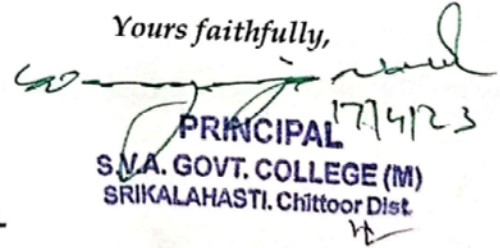 Yours faithfully,
17/4/23
PRINCIPAL
S.V.A. GOVT. COLLEGE (M)
SRIKALAHASTI. Chittoor Dist.